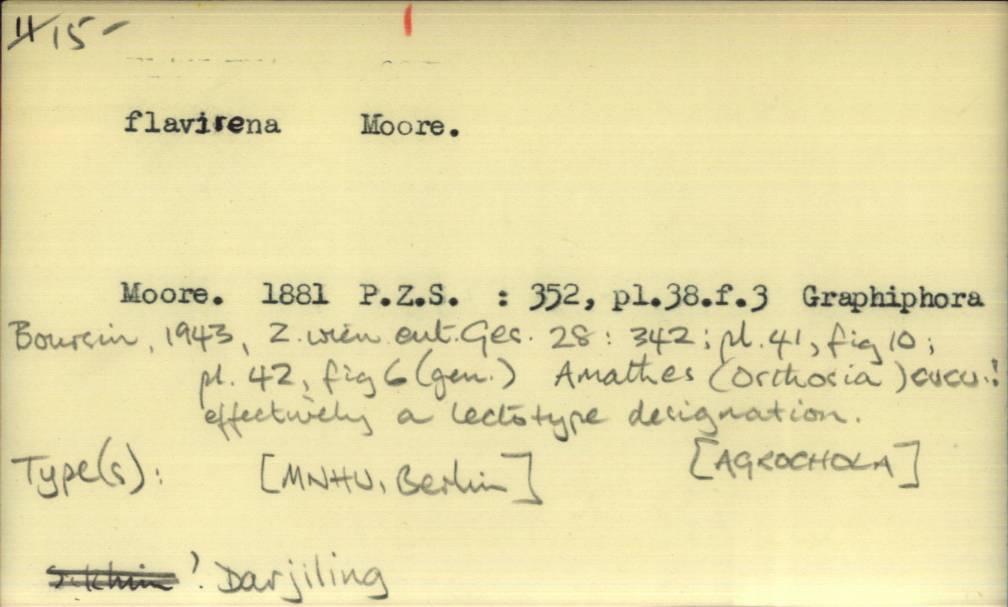 4/15-
flavirena Moore.
Moore. 1881 P.Z.S. : 352, pl.38.f.3 Graphiphora
Boursin, 1943, Z. wien ent. Ges. 28: 342; pl. 41, fig 10;
pl. 42, fig 6 (gen.) Amathes (Orthosia)
effectively a lectotype designation.
Type(s): [MNHU, Berlin] [AGROCHOLA]
Sikhim ? Darjiling